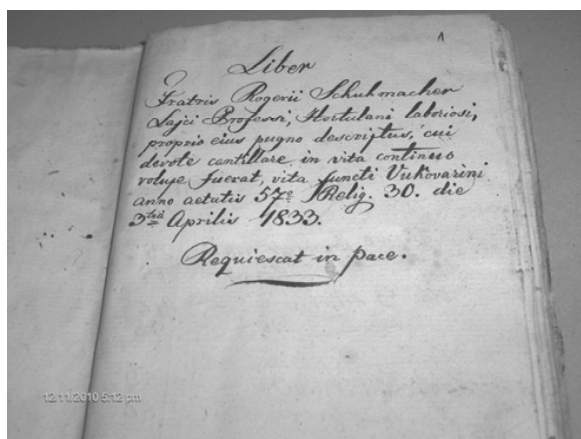 1
Liber
Fratris Rogerii Schuhmacher
Lajci Professi, Hortulani laboriosi,
proprio eius pugno descriptus, cui
devote cantillare in vita continuo
volupe fuerat, vita functi Vukovarini
anno aetatis 57º Relig. 30. die
3tia Aprilis 1833.
Requiescat in pace.
12/11/2010 5:12 pm